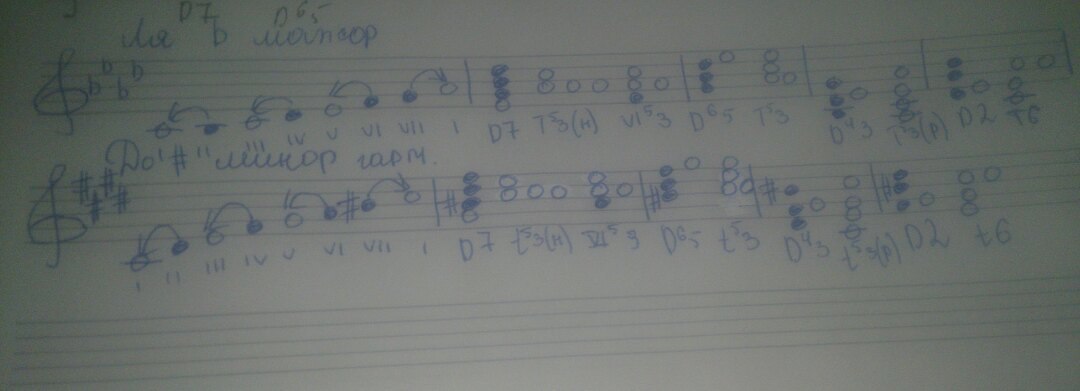 D7 D65
Ля b мажор
III IV V VI VII I D7 T53(н) VI53 D65 T53 D43 T53(р) D2 T6
До "#" минор гарм.
I II III IV V VI VII I D7 t53(н) VI53 D65 t53 D43 t53(р) D2 t6